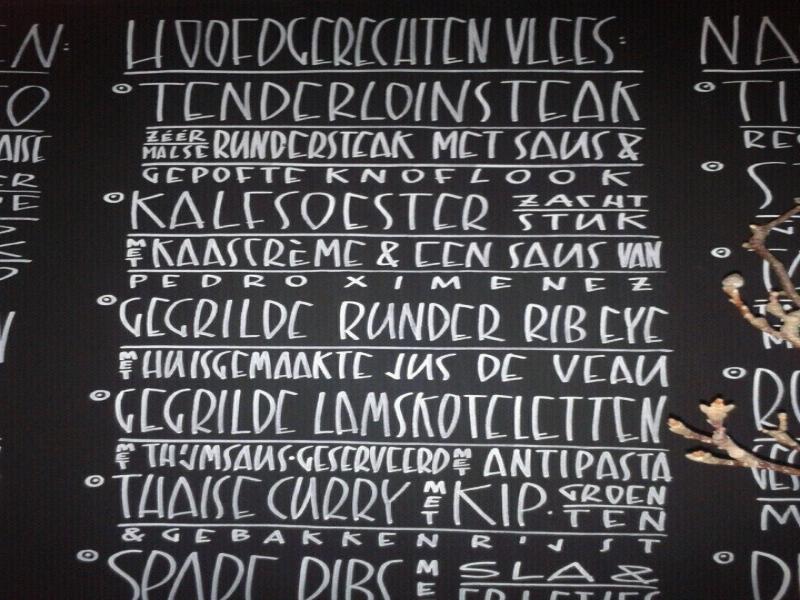 HOOFDGERECHTEN VLEES:
TENDERLOINSTEAK
ZÉÉR MALSE RUNDERSTEAK MET SAUS &
GEPOFTE KNOFLOOK
KALFSOESTER ZACHT STUK
MET KAASCRÈME & EEN SAUS VAN
PEDRO XIMENEZ
GEGRILDE RUNDER RIB EYE
MET HUISGEMAAKTE JUS DE VEAU
GEGRILDE LAMSKOTELETTEN
MET THIJMSAUS·GESERVEERD MET ANTIPASTA
THAISE CURRY MET KIP· GROENTEN
& GEBAKKEN RIJST
SPARE RIBS ME SLA &